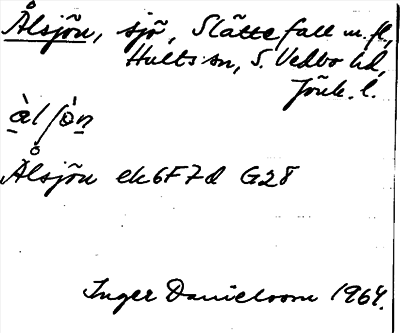 Ålsjön, sjö, Slättefall m. fl.,
Hults sn, S. Vedbo hd,
Jönk. l.
àl/òn
Ålsjön ek 6F7d G28
Inger Danielsson 1964.